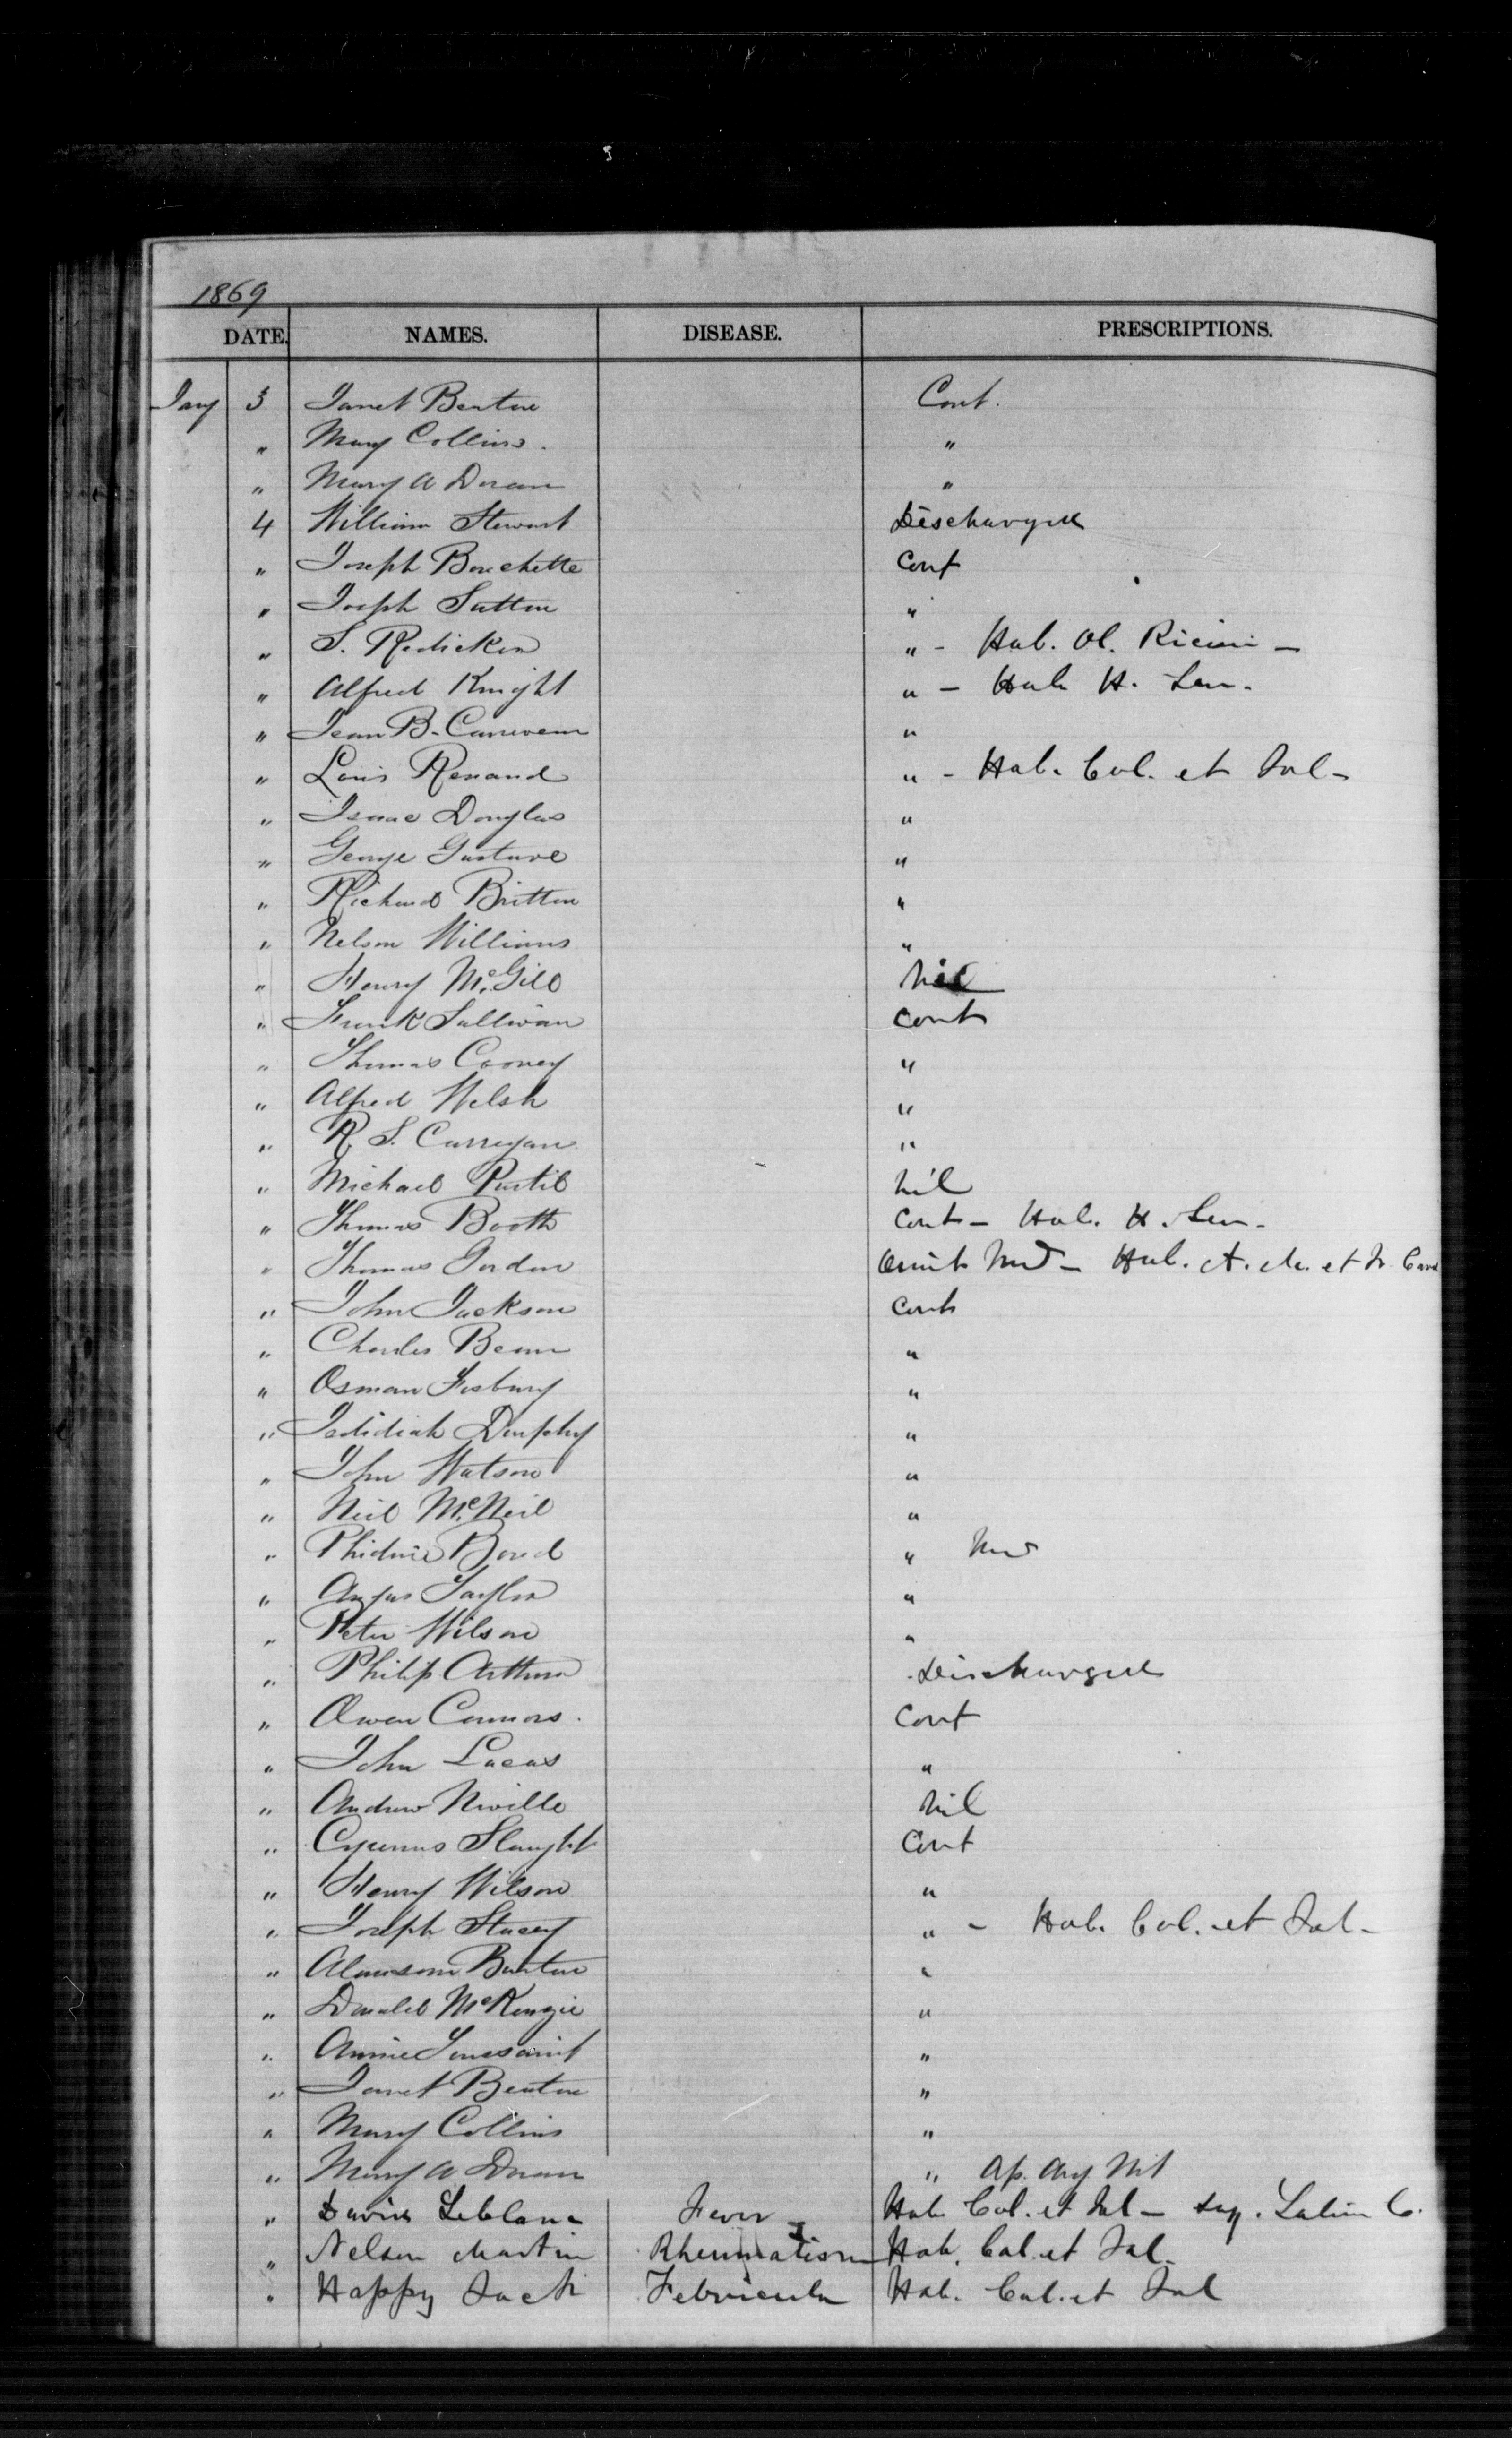 1869
DATE. NAMES. DISEASE. PRESCRIPTIONS.
Jany 3 Janet Benton Cont.
" Mary Collins. "
" Mary A Doran "
4 William Stewart Discharged
" Joseph Bouchette Cont
" Joseph Sutton "
" S. Redicken " - Hab. Ol. Ricini -
" Alfred Knight " - Hab H. Sen.
" Jean B. Carriveau "
" Louis Renaud " - Hab. Cal. et Jal -
" Isaac Douglas "
" George Gustave "
" Richard Britton "
" Nelson Williams "
" Henry McGill nil
" Frank Sullivan Cont
" Thomas Cooney "
" Alfred Welsh "
" R. S. Carregan "
" Michael Purtil nil
" Thomas Booth Cont - Hab. H. Sen -
" Thomas Gordon Omit Med - Hab. et
" John Jackson Cont
" Charles Beam "
" Osman Fosbury "
" Jedidiah Dunphy "
" John Watson "
" Neil McNeil "
" Bond "
" Angus Taylor "
" Peter Wilson "
" Philip Arthur Discharged
" Owen Connors. Cont
" John Lucas "
" Andrew Neville nil
" Cyrenus Slaught Cont
" Henry Wilson "
" Joseph Stacey " - Hab. Cal. et Jal -
" Alanson Burton "
" Donald McKenzie "
" Annie Toussaint "
" Janet Benton "
" Mary Collins "
" Mary A Doran " Ap. Arg Nit
" Leblanc Fever Hab Cal. et Jal -
" Nelson Martin Rheumatism Hab. Cal. et Jal -
" Happy Jack Febricula Hab. Cal. et Jal